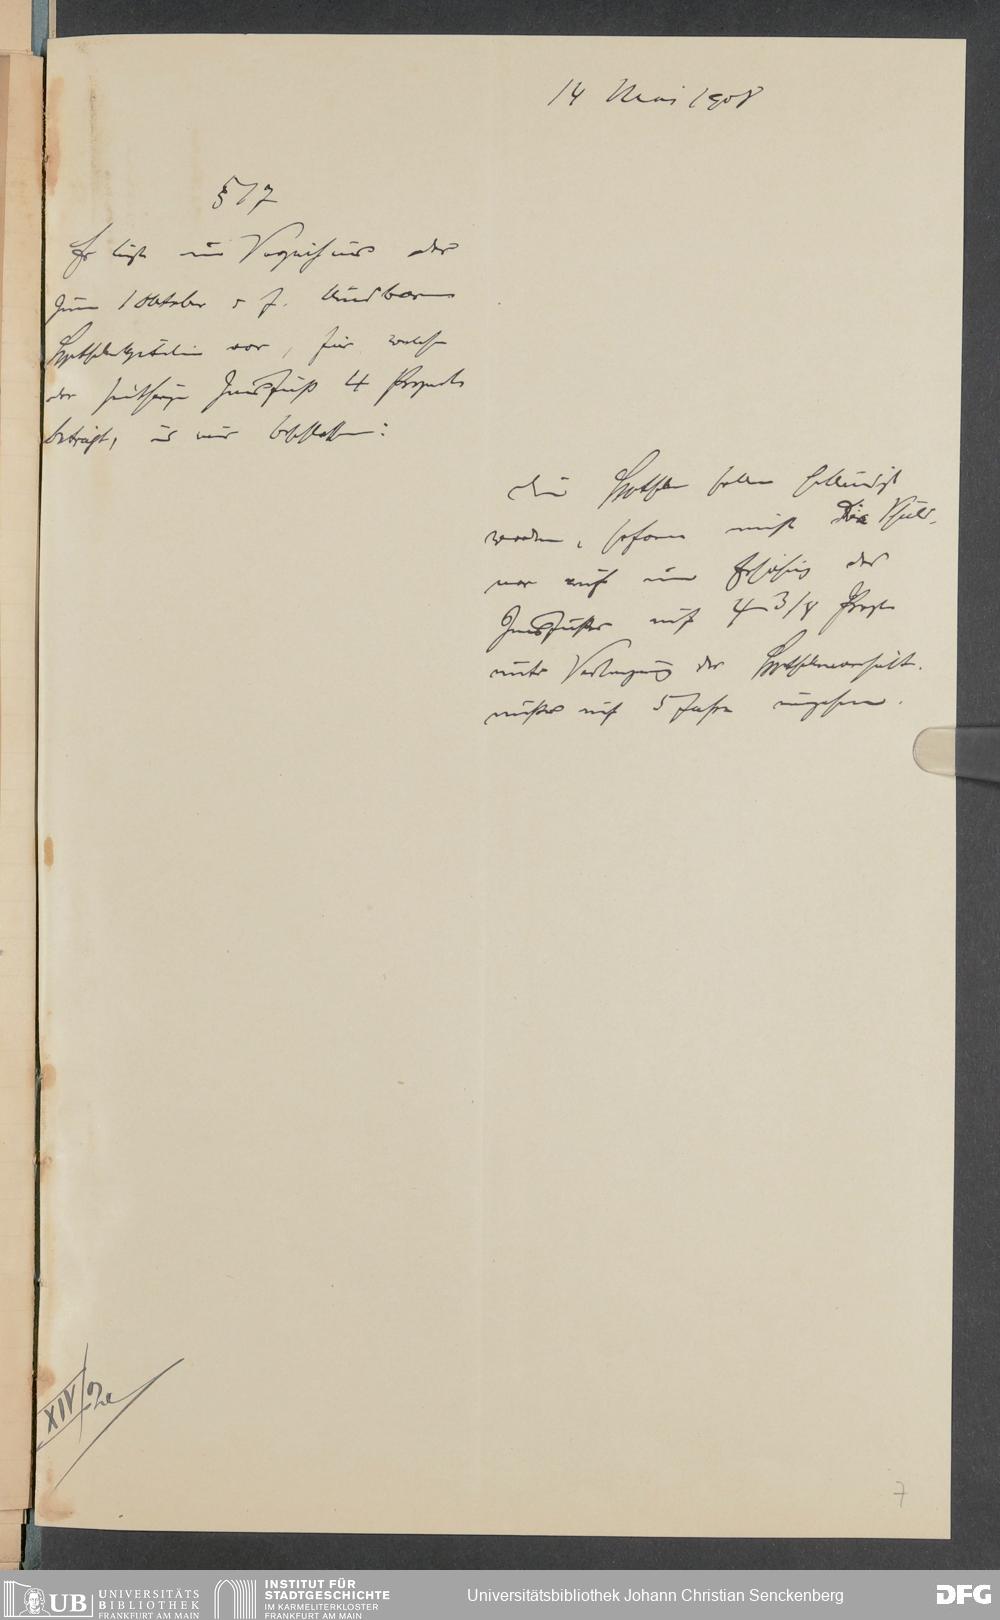 14 Mai 1908
§ 17
Es liegt ein Verzeichnis der
zum 1 Oktober d J. kündbaren
Hypothekgelder vor, für welche
der seitherige Zinsfuß 4 Prozent
beträgt, es wird beschlossen:
die Hypotheken sollen gekündigt
werden, sofern nicht die Schuld-
ner auf eine Erhöhung des
Zinsfußes auf 4 3/8 Prozent
unter Verlängerung der Hypothekenverhält-
nisse auf 5 Jahre eingehen.
XIV/2a
7
UB UNIVERSITÄTS
BIBLIOTHEK
FRANKFURT AM MAIN
INSTITUT FÜR
STADTGESCHICHTE
IM KARMELITERKLOSTER
FRANKFURT AM MAIN
Universitätsbibliothek Johann Christian Senckenberg
DFG